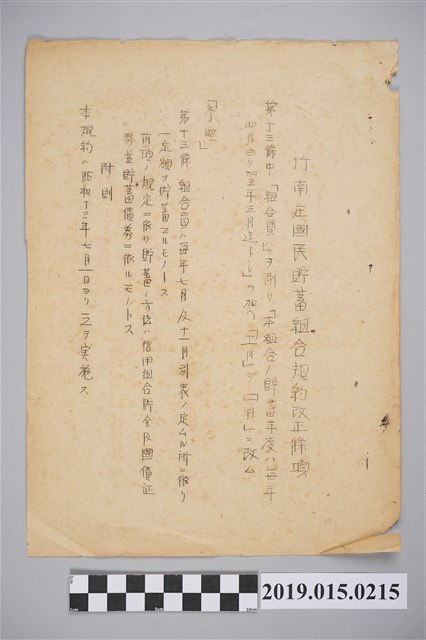 竹南庄國民貯蓄組合規約改正條項
第十三條中「組合員」ヲ削リ「本組合ノ貯蓄年度ハ毎年
四月ヨリ翌年三月迄トシ」ヲ加ヘ「十一月」ヲ「一月」ニ改ム
「参照」
第十三條 組合員ハ毎年七月及十一月別表ノ定ムル所ニ依リ
一定額ヲ貯蓄スルモノトス
前項ノ規定ニ依リ貯蓄ノ方法ハ信用組合貯金及國債証
券並貯蓄債券ニ依ルモノトス
附則
本規約ハ昭和十三年七月一日ヨリ之ヲ実施ス
2019.015.0215